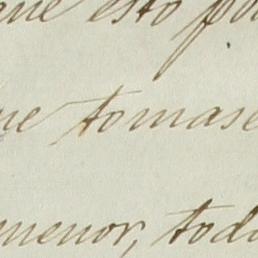 que esto po
ne tomase
menor, todo